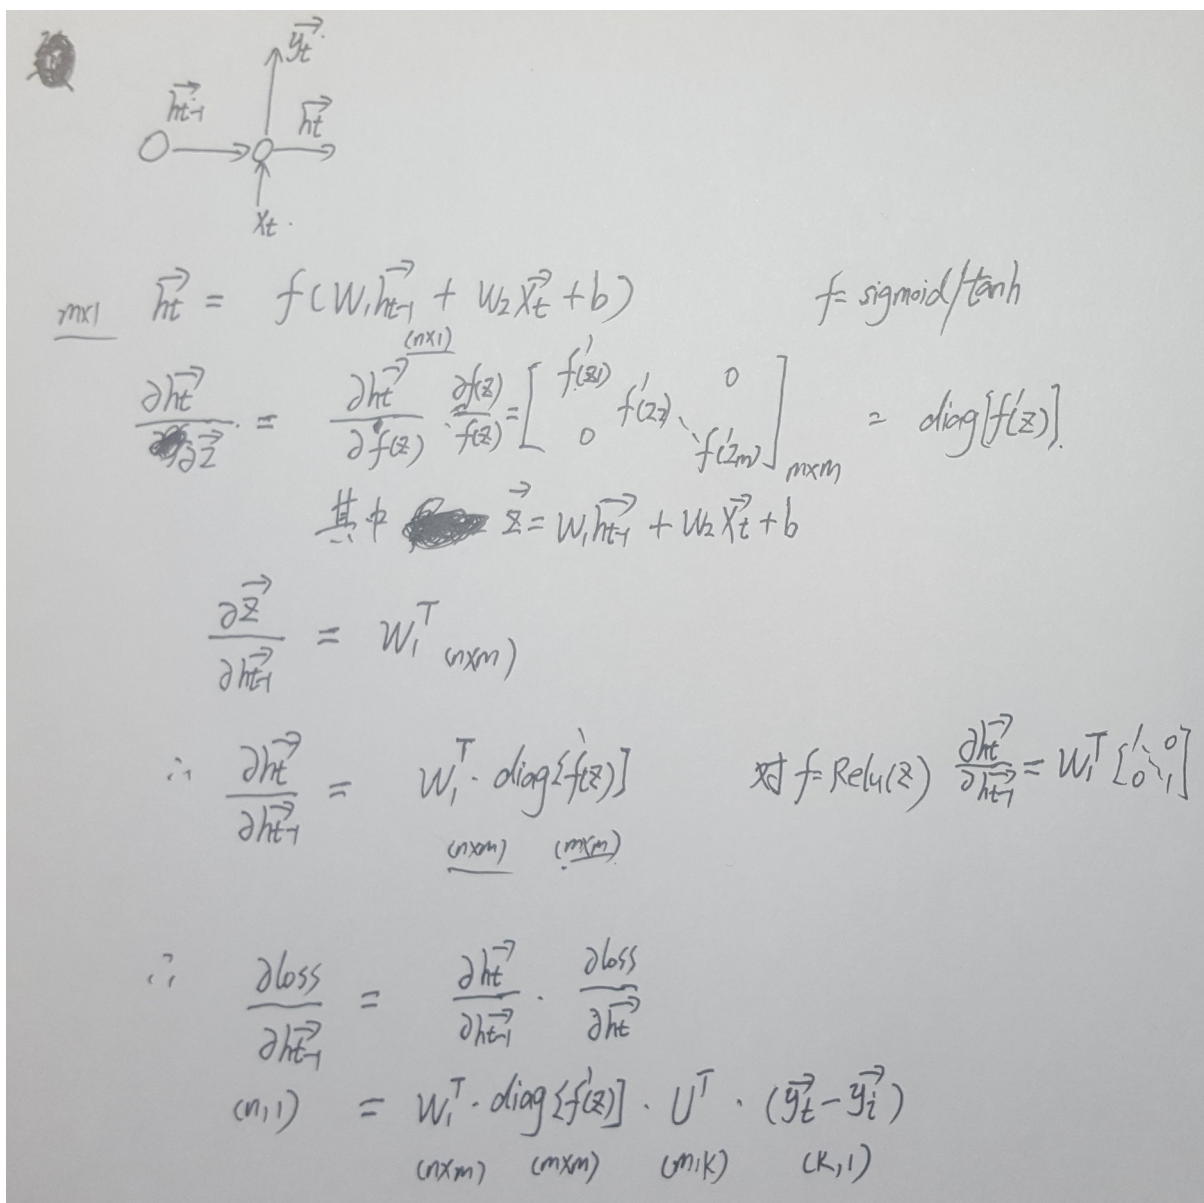 y⃗t
h⃗t-1
h⃗t
xt.
m×1 h⃗t = f(W1h⃗t-1 + W2X⃗t + b) f = sigmoid/tanh
(n×1)
∂h⃗t/∂z⃗ = ∂h⃗t/∂f(z) · ∂f(z)/f(z) = [f'(z1) f'(z2) ⋱ f'(zm) 0 0]m×m = diag[f'(z)].
其中 z⃗ = W1h⃗t-1 + W2X⃗t + b
∂z⃗/∂h⃗t-1 = W1^T (n×m)
∴ ∂h⃗t/∂h⃗t-1 = W1^T · diag{f'(z)] 对 f = Relu(z) ∂h⃗t/∂h⃗t-1 = W1^T [1 0 ⋱ 0 1]
(n×m) (m×m)
∴ ∂loss/∂h⃗t-1 = ∂h⃗t/∂h⃗t-1 · ∂loss/∂h⃗t
(n,1) = W1^T · diag{f'(z)] · U^T · (y⃗t - y⃗i)
(n×m) (m×m) (m,k) (k,1)